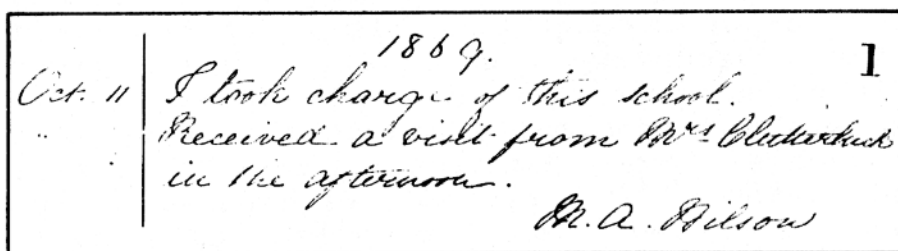 1869.
1
Oct. 11 I took charge of this school.
" Received a visit from Mrs Clutterbuck
in the afternoon.
M. A. Wilson